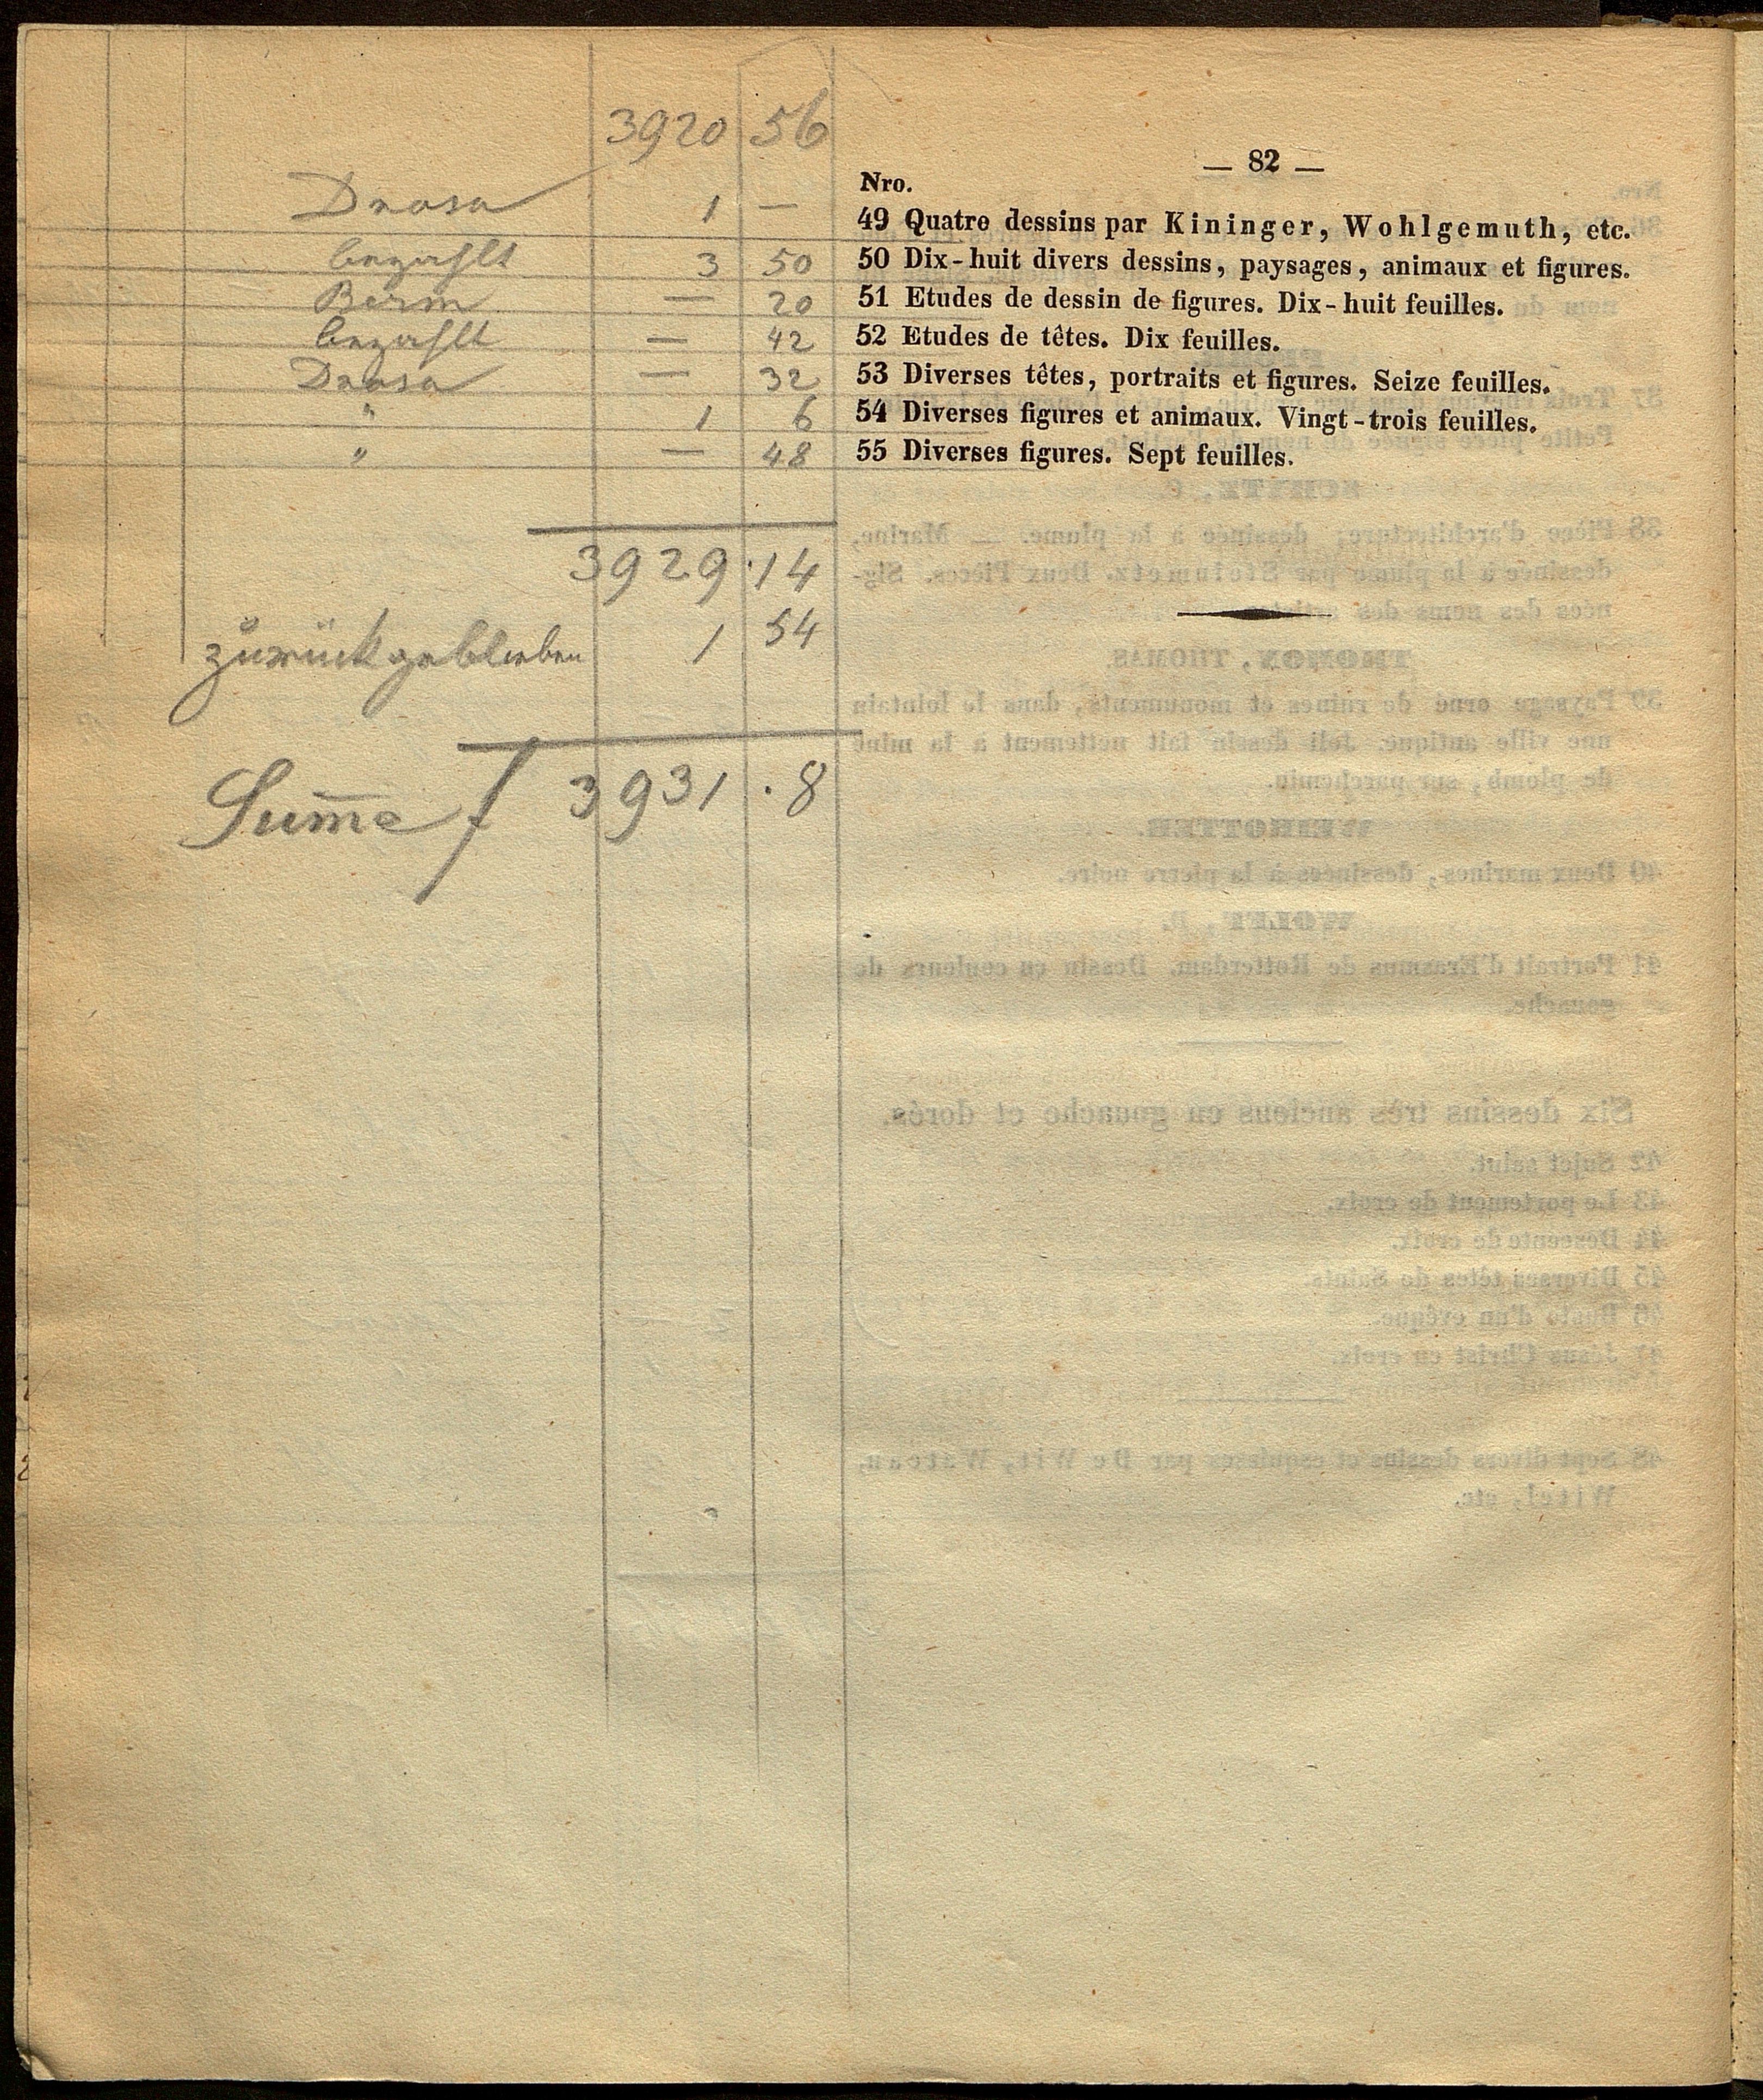 3920 56
— 82 —
Nro.
1 — 49 Quatre dessins par Kininger, Wohlgemuth, etc.
bezahlt 3 50 50 Dix-huit divers dessins, paysages, animaux et figures.
Börm — 20 51 Etudes de dessin de figures. Dix-huit feuilles.
bezahlt — 42 52 Etudes de têtes. Dix feuilles.
— 32 53 Diverses têtes, portraits et figures. Seize feuilles.
" 1 6 54 Diverses figures et animaux. Vingt-trois feuilles.
" — 48 55 Diverses figures. Sept feuilles.
3929 . 14
zurückgeblieben 1 54
Sum̄a f 3931 . 8